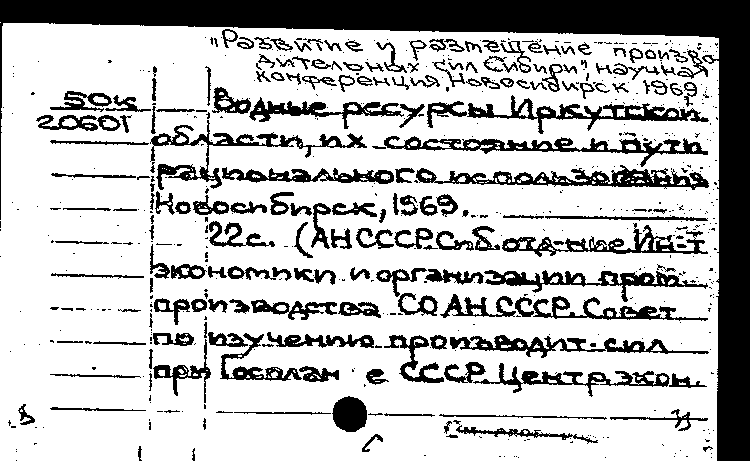 "Развитие и размещение произво-
дительных сил Сибири", научная
конференция, Новосибирск 1969.
50к Водные ресурсы Иркутской
20601 области, их состояние и пути
рационального использования
Новосибирск, 1969.
22с. (АН СССР. Сиб. отд-ние Ин-т
экономики и организации пром.
производства СО АН СССР. Совет
по изучению производит. сил
при Госплан е СССР. Центр. экон.